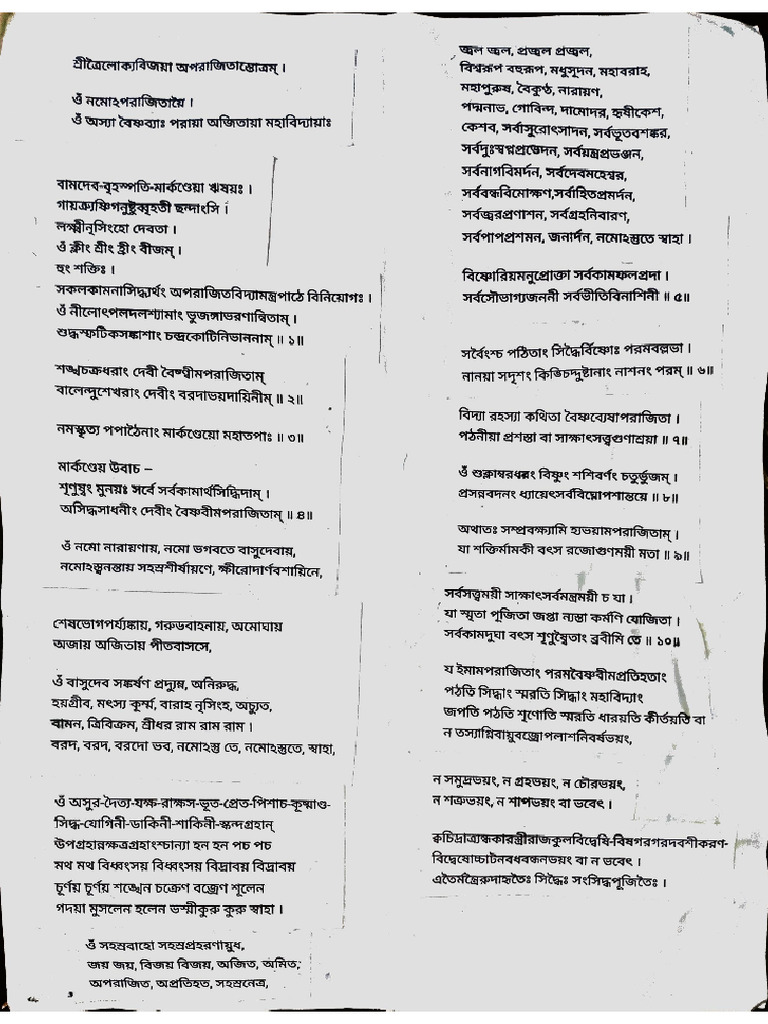 শ্রীত্রৈলোক্যবিজয়া অপরাজিতাস্তোত্রম্ ।
ওঁ নমোঽপরাজিতায়ৈ ।
ওঁ অস্যা বৈষ্ণব্যাঃ পরায়া অজিতায়া মহাবিদ্যায়াঃ
বামদেব-বৃহস্পতি-মার্কণ্ডেয়া ঋষয়ঃ ।
গায়ত্র্যুষ্ণিগনুষ্টুব্বৃহতী ছন্দাংসি ।
লক্ষ্মীনৃসিংহো দেবতা ।
ওঁ ক্লীং শ্রীং হ্রীং বীজম্ ।
হুং শক্তিঃ ।
সকলকামনাসিদ্ধ্যর্থং অপরাজিতবিদ্যামন্ত্রপাঠে বিনিয়োগঃ ।
ওঁ নীলোৎপলদলশ্যামাং ভুজঙ্গাভরণান্বিতাম্ ।
শুদ্ধস্ফটিকসঙ্কাশাং চন্দ্রকোটিনিভাননাম্ ॥ ১॥
শঙ্খচক্রধরাং দেবী বৈষ্ণ্বীমপরাজিতাম্
বালেন্দুশেখরাং দেবীং বরদাভয়দায়িনীম্ ॥ ২॥
নমস্কৃত্য পপাঠৈনাং মার্কণ্ডেয়ো মহাতপাঃ ॥ ৩॥
মার্কণ্ডেয় উবাচ –
শৃণুষ্বং মুনয়ঃ সর্বে সর্বকামার্থসিদ্ধিদাম্ ।
অসিদ্ধসাধনীং দেবীং বৈষ্ণবীমপরাজিতাম্ ॥ ৪॥
ওঁ নমো নারায়ণায়, নমো ভগবতে বাসুদেবায়,
নমোঽস্ত্বনন্তায় সহস্রশীর্ষায়ণে, ক্ষীরোদার্ণবশায়িনে,
শেষভোগপর্য্যঙ্কায়, গরুডবাহনায়, অমোঘায়
অজায় অজিতায় পীতবাসসে,
ওঁ বাসুদেব সঙ্কর্ষণ প্রদ্যুম্ন, অনিরুদ্ধ,
হয়গ্রীব, মৎস্য কূর্ম্ম, বারাহ নৃসিংহ, অচ্যুত,
বামন, ত্রিবিক্রম, শ্রীধর রাম রাম রাম ।
বরদ, বরদ, বরদো ভব, নমোঽস্তু তে, নমোঽস্তুতে, স্বাহা,
ওঁ অসুর-দৈত্য-যক্ষ-রাক্ষস-ভূত-প্রেত-পিশাচ-কূষ্মাণ্ড-
সিদ্ধ-যোগিনী-ডাকিনী-শাকিনী-স্কন্দগ্রহান্
উপগ্রহান্নক্ষত্রগ্রহাংশ্চান্যা হন হন পচ পচ
মথ মথ বিধ্বংসয় বিধ্বংসয় বিদ্রাবয় বিদ্রাবয়
চূর্ণয় চূর্ণয় শঙ্খেন চক্রেণ বজ্রেণ শূলেন
গদয়া মুসলেন হলেন ভস্মীকুরু কুরু স্বাহা ।
ওঁ সহস্রবাহো সহস্রপ্রহরণায়ুধ,
জয় জয়, বিজয় বিজয়, অজিত, অমিত,
অপরাজিত, অপ্রতিহত, সহস্রনেত্র,
জ্বল জ্বল, প্রজ্বল প্রজ্বল,
বিশ্বরূপ বহুরূপ, মধুসূদন, মহাবরাহ,
মহাপুরুষ, বৈকুণ্ঠ, নারায়ণ,
পদ্মনাভ, গোবিন্দ, দামোদর, হৃষীকেশ,
কেশব, সর্বাসুরোৎসাদন, সর্বভূতবশঙ্কর,
সর্বদুঃস্বপ্নপ্রভেদন, সর্বয়ন্ত্রপ্রভঞ্জন,
সর্বনাগবিমর্দন, সর্বদেবমহেশ্বর,
সর্ববন্ধবিমোক্ষণ,সর্বাহিতপ্রমর্দন,
সর্বজ্বরপ্রণাশন, সর্বগ্রহনিবারণ,
সর্বপাপপ্রশমন, জনার্দন, নমোঽস্তুতে স্বাহা ।
বিষ্ণোরিয়মনুপ্রোক্তা সর্বকামফলপ্রদা ।
সর্বসৌভাগ্যজননী সর্বভীতিবিনাশিনী ॥ ৫॥
সর্বৈংশ্চ পঠিতাং সিদ্ধৈর্বিষ্ণোঃ পরমবল্লভা ।
নানয়া সদৃশং কিঙ্চিদ্দুষ্টানাং নাশনং পরম্ ॥ ৬॥
বিদ্যা রহস্যা কথিতা বৈষ্ণব্যেষাপরাজিতা ।
পঠনীয়া প্রশস্তা বা সাক্ষাৎসত্ত্বগুণাশ্রয়া ॥ ৭॥
ওঁ শুক্লাম্বরধরং বিষ্ণুং শশিবর্ণং চতুর্ভুজম্ ।
প্রসন্নবদনং ধ্যায়েৎসর্ববিঘ্নোপশান্তয়ে ॥ ৮॥
অথাতঃ সম্প্রবক্ষ্যামি হ্যভয়ামপরাজিতাম্ ।
যা শক্তির্মামকী বৎস রজোগুণময়ী মতা ॥ ৯॥
সর্বসত্ত্বময়ী সাক্ষাৎসর্বমন্ত্রময়ী চ যা ।
যা স্মৃতা পূজিতা জপ্তা ন্যস্তা কর্মণি যোজিতা ।
সর্বকামদুঘা বৎস শৃণুষ্বৈতাং ব্রবীমি তে ॥ ১০॥
য ইমামপরাজিতাং পরমবৈষ্ণবীমপ্রতিহতাং
পঠতি সিদ্ধাং স্মরতি সিদ্ধাং মহাবিদ্যাং
জপতি পঠতি শৃণোতি স্মরতি ধারয়তি কীর্তয়তি বা
ন তস্যাগ্নিবায়ুবজ্রোপলাশনিবর্ষভয়ং,
ন সমুদ্রভয়ং, ন গ্রহভয়ং, ন চৌরভয়ং,
ন শত্রুভয়ং, ন শাপভয়ং বা ভবেৎ ।
ক্বচিদ্রাত্র্যন্ধকারস্ত্রীরাজকুলবিদ্বেষি-বিষগরগরদবশীকরণ-
বিদ্বেষোচ্চাটনবধবন্ধনভয়ং বা ন ভবেৎ ।
এতৈর্মন্ত্রৈরুদাহৃতৈঃ সিদ্ধৈঃ সংসিদ্ধপূজিতৈঃ ।